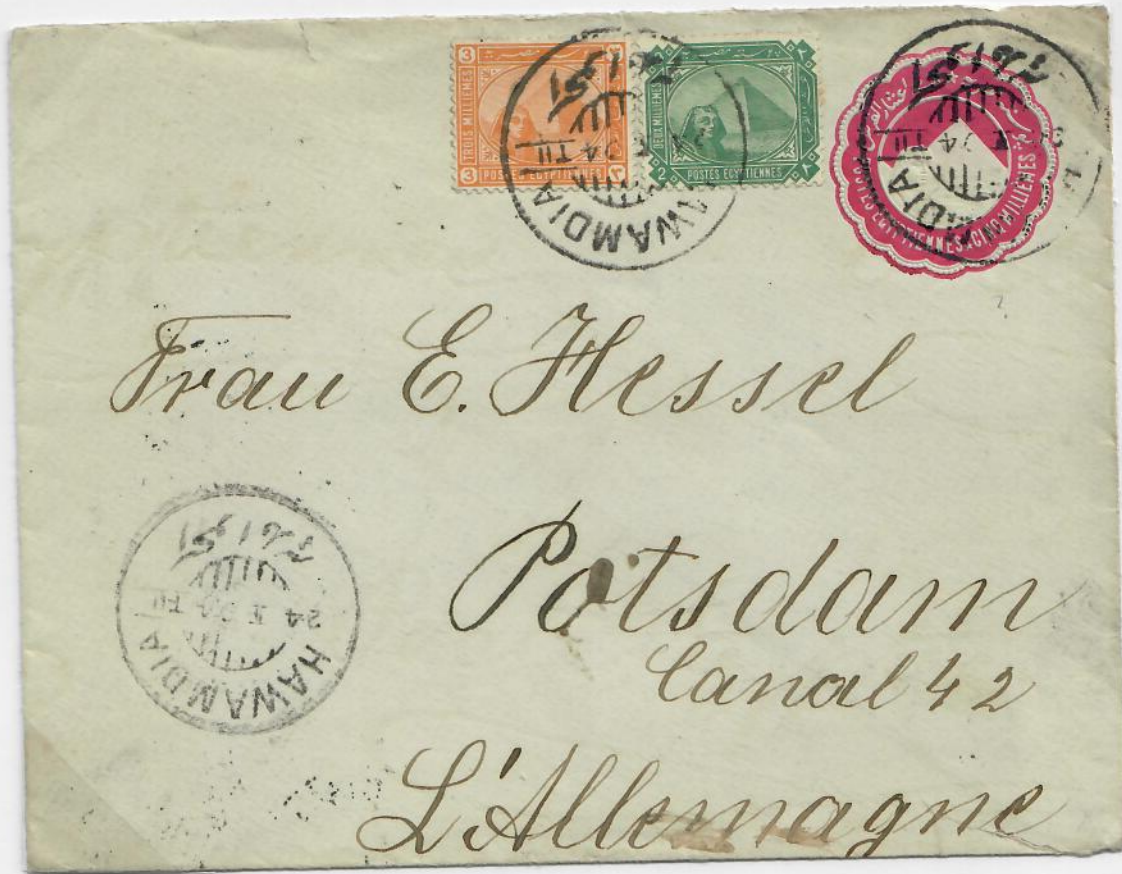 3 3
TROIS MILLIEMES
POSTES EGYPTIENNES
3 ٣
2 ٢
DEUX MILLIEMES
POSTES EGYPTIENNES
2 ٢
HAWAMDIA
POSTES EGYPTIENNES CINQ MILLIEMES
Frau E. Hessel
Potsdam
Canal 42
L'Allemagne
الحوامدية
24 X
HAWAMDIA